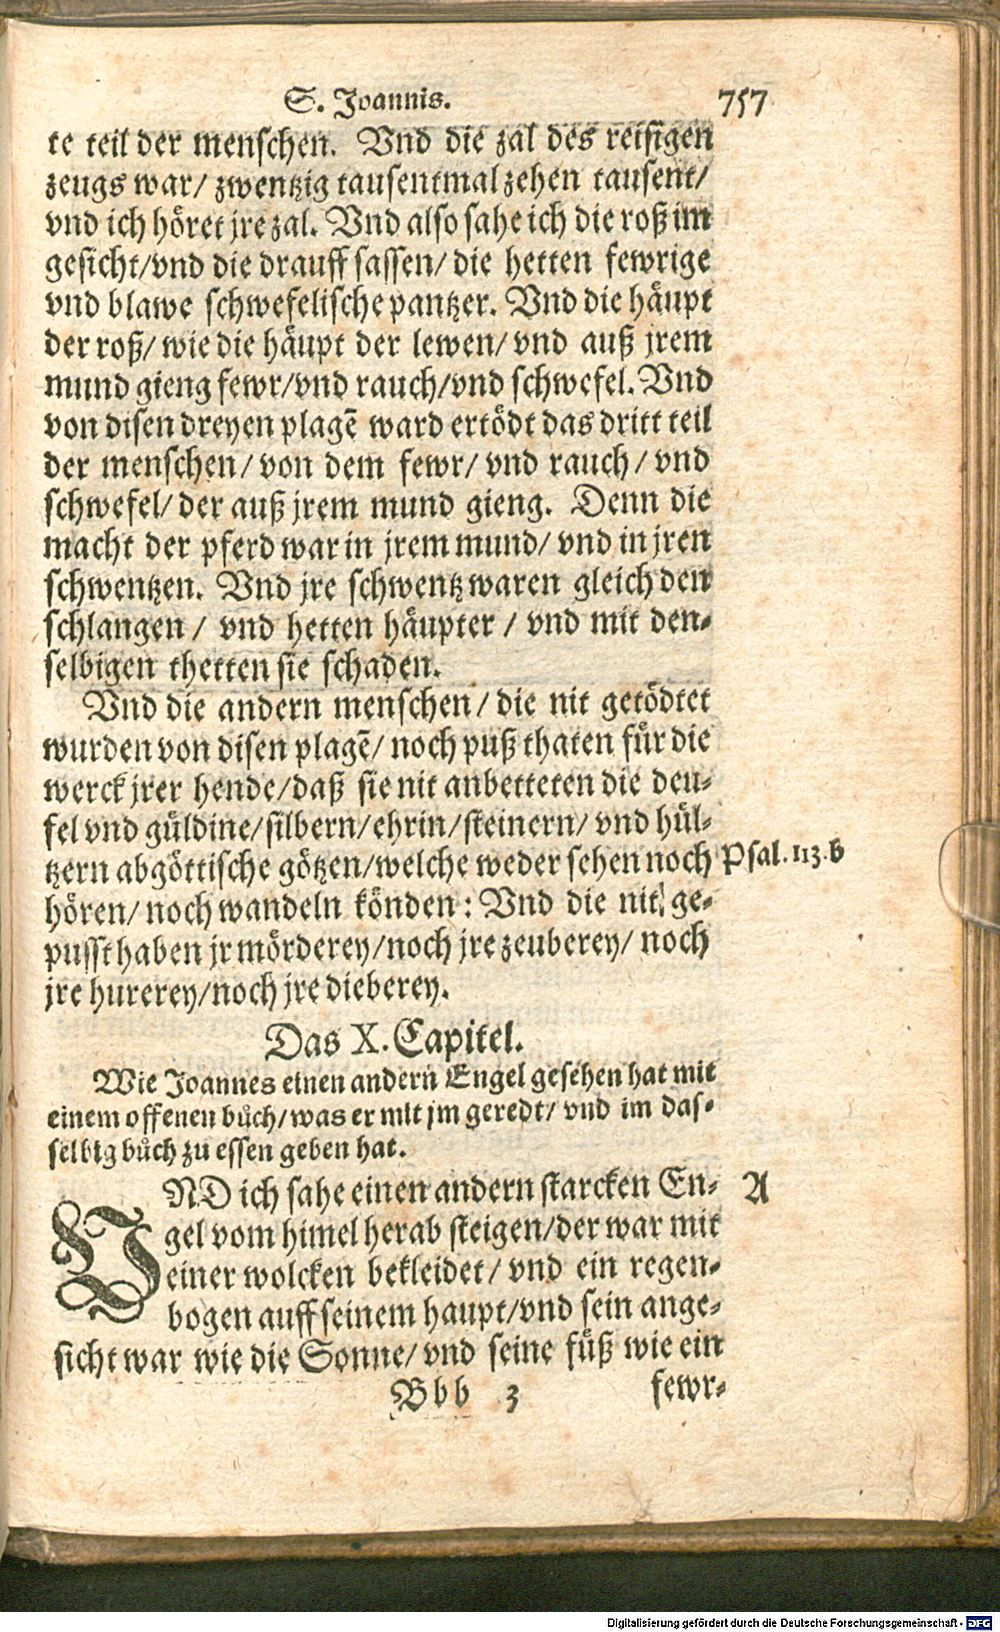 S. Joannis. 757
te teil der menschen. Vnd die zal des reisigen
zeugs war/ zwentzig tausentmal zehen tausent/
vnd ich höret jre zal. Vnd also sahe ich die roß im
gesicht/vnd die drauff sassen/ die hetten fewrige
vnd blawe schwefelische pantzer. Vnd die häupt
der roß/ wie die häupt der lewen/ vnd auß jrem
mund gieng fewr/vnd rauch/vnd schwefel. Vnd
von disen dreyen plagē ward ertödt das dritt teil
der menschen/ von dem fewr/ vnd rauch/ vnd
schwefel/ der auß jrem mund gieng. Denn die
macht der pferd war in jrem mund/ vnd in jren
schwentzen. Vnd jre schwentz waren gleich den
schlangen/ vnd hetten häupter/ vnd mit den-
selbigen thetten sie schaden.
Vnd die andern menschen/ die nit getödtet
wurden von disen plagē/ noch puß thaten für die
werck jrer hende/daß sie nit anbetteten die deu-
fel vnd güldine/silbern/ehrin/steinern/ vnd hül-
tzern abgöttische götzen/welche weder sehen noch Psal. 113. b
hören/ noch wandeln könden: Vnd die nit ge-
pusst haben jr mörderey/noch jre zeuberey/ noch
jre hurerey/noch jre dieberey.
Das X. Capitel.
Wie Joannes einen andern Engel gesehen hat mit
einem offenen bůch/was er mit jm geredt/ vnd im das-
selbig bůch zu essen geben hat.
VND ich sahe einen andern starcken En- A
gel vom himel herab steigen/der war mit
einer wolcken bekleidet/ vnd ein regen-
bogen auff seinem haupt/vnd sein ange-
sicht war wie die Sonne/ vnd seine füß wie ein
Bbb 3 fewr-
Digitalisierung gefördert durch die Deutsche Forschungsgemeinschaft - DFG